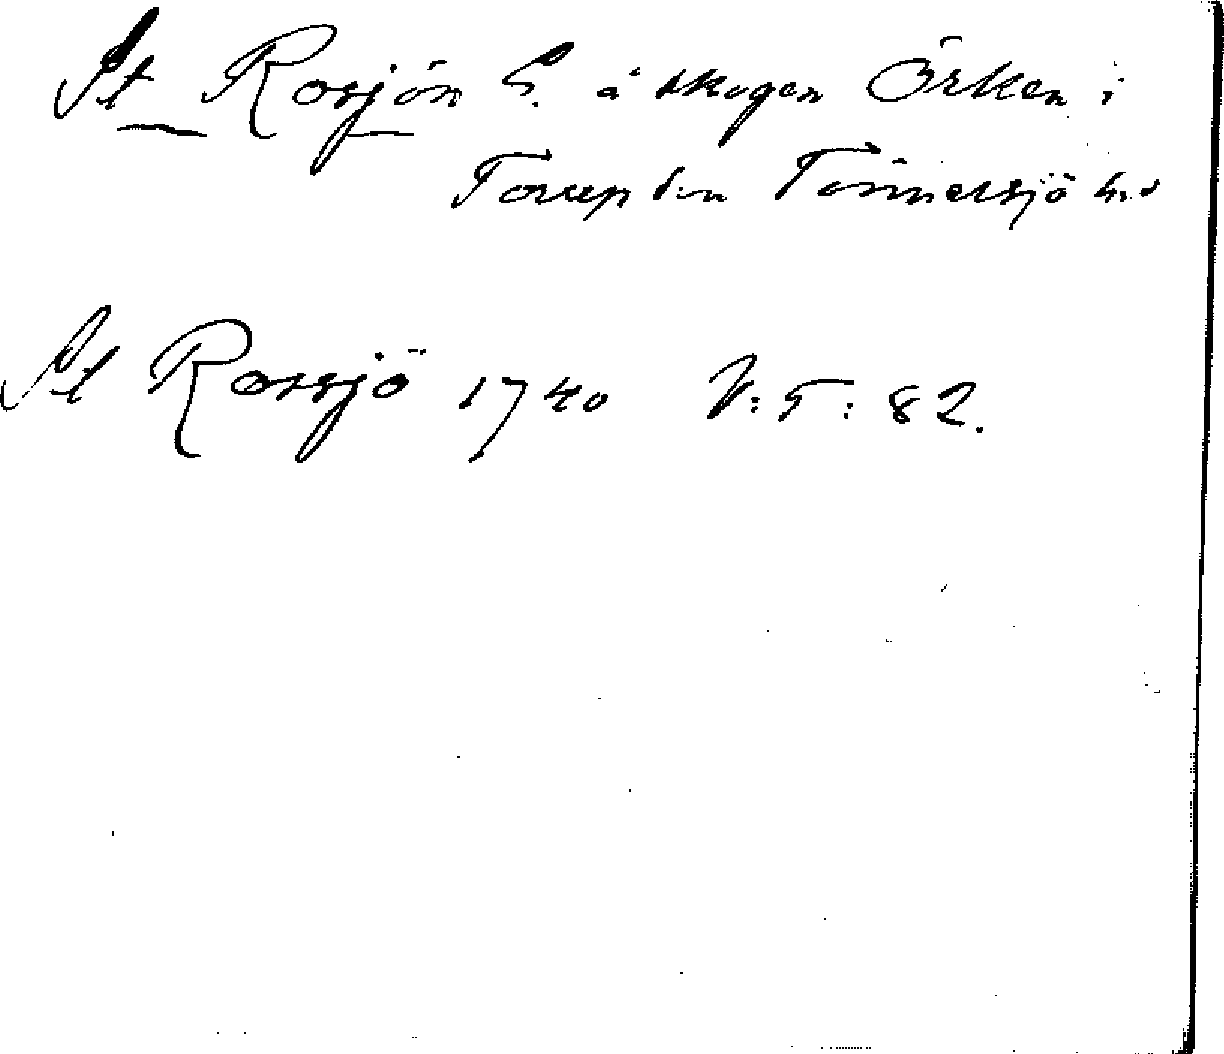 St Rosjön S. å skogen Örken i
Torup sn Tönnersjö hd
St Rossjö 1740 V: G: 82.